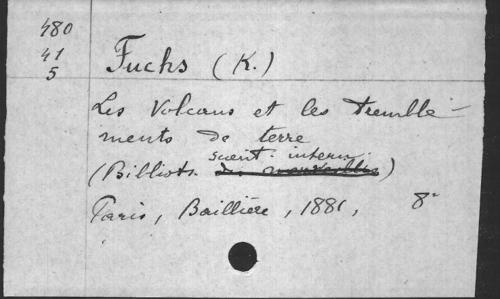 480
41
5
Fuchs (K.)
Les Volcans et les tremble-
ments de terre
scient. intern.
(Biblioth. des merveilles)
Paris, Baillière, 1881, 8°